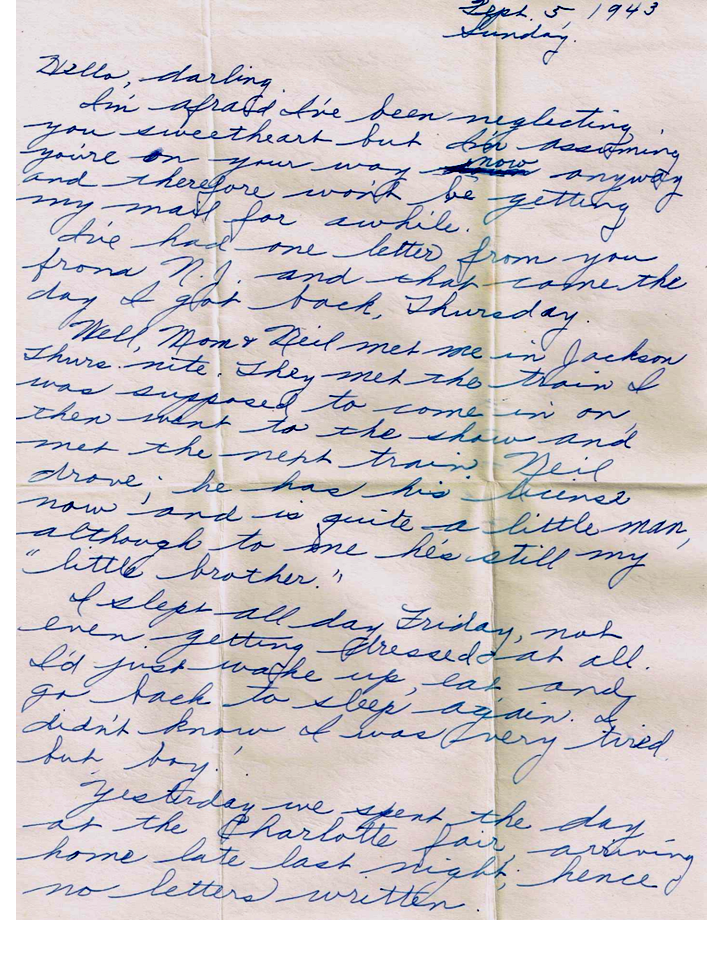 Sept. 5, 1943
Sunday.
Hello, darling.
I'm afraid I've been neglecting
you sweetheart but I'm assuming
you're on your way now anyway
and therefore won't be getting
my mail for awhile.
I've had one letter from you
from N.J. and that came the
day I got back, Thursday.
Well, Mom & Neil met me in Jackson
Thurs. nite. They met the train I
was supposed to come in on,
then went to the show and
met the next train. Neil
drove; he has his license
now and is quite a little man,
although to me he's still my
"little brother."
I slept all day Friday, not
even getting dressed at all.
I'd just wake up, eat and
go back to sleep again. I
didn't know I was very tired
but boy!
Yesterday we spent the day
at the Charlotte fair, arriving
home late last night; hence
no letters written.